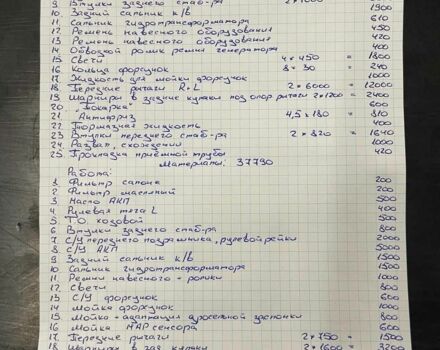 9. Втулки заднего стаб-ра 2 x 1000
10 Задний сальник к/в 1900
11. Сальник гидротрансформатора 610
12 Ремень навесного оборудования 450
13 Ремень навесного оборудования 420
14 Обводной ролик ремня генератора 400
15 Свечи 4 x 450 = 1800
16 Кольца форсунок 8 x 30 = 240
17. Жидкость для мойки форсунок 1000
18 Передние рычаги R+L 2 x 6000 = 12000
19 Шарниры в задние кулаки под опор. рычаги 2 x 1200 = 2400
20 "Локарки" 600
21. Антифриз 4,5 x 180 = 810
22 Тормозная жидкость 400
23 Втулки переднего стаб-ра 2 x 820 = 1640
24 Развал, схождение 1000
25. Прокладка приёмной трубы 420
Материалы: 37790
Работа:
1 Фильтр салона 200
2 Фильтр масляный 200
3 Масло АКП 500
4 Рулевая тяга L 400
5 Т.О. ходовой 500
6 Втулки заднего стаб-ра 800
7. С/У переднего подрамника, рулевой рейки 2000
8 С/У АКП 5000
9 Задний сальник к/в 1500
10. Сальник гидротрансформатора 1500
11 Ремни навесного + ролик 1000
12 Свечи 800
13 С/У форсунок 600
14 Мойка форсунок 1000
15 Мойка + адаптация дросельной заслонки 800
16 Мойка MAP сенсора 600
17 Передние рычаги 2 x 750 = 1500
18 Шарниры в зад. кулаки 2 x 1600 = 3200